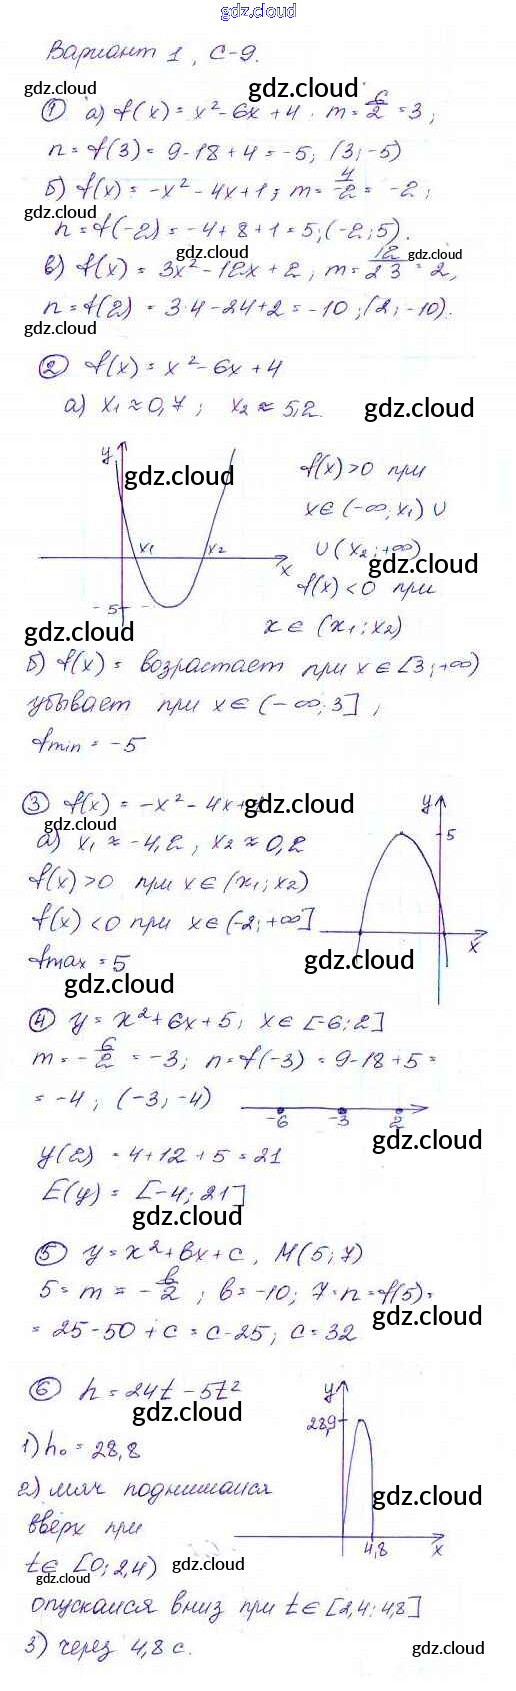 gdz.cloud
Вариант 1, С-9.
gdz.cloud
gdz.cloud
① а) f(x) = x² - 6x + 4 . m = 6/2 = 3;
gdz.cloud
n = f(3) = 9 - 18 + 4 = -5; (3; -5)
б) f(x) = -x² - 4x + 1; m = 4/-2 = -2;
gdz.cloud
n = f(-2) = -4 + 8 + 1 = 5; (-2; 5).
gdz.cloud
gdz.cloud
в) f(x) = 3x² - 12x + 2; m = 12/2·3 = 2,
n = f(2) = 3·4 - 24 + 2 = -10; (2; -10).
gdz.cloud
② f(x) = x² - 6x + 4
а) x₁ ≈ 0,7; x₂ ≈ 5,2.
gdz.cloud
y
gdz.cloud
f(x) > 0 при
x ∈ (-∞; x₁) ∪
x₁ x₂
∪ (x₂; +∞)
gdz.cloud
x
f(x) < 0 при
-5
gdz.cloud
x ∈ (x₁; x₂)
б) f(x) = возрастает при x ∈ [3; +∞)
убывает при x ∈ (-∞; 3];
fmin = -5
③ f(x) = -x² - 4x + 1
gdz.cloud
y
gdz.cloud
5
а) x₁ ≈ -4,2, x₂ ≈ 0,2
f(x) > 0 при x ∈ (x₁; x₂)
f(x) < 0 при x ∈ (-2; +∞]
x
fmax = 5
gdz.cloud
gdz.cloud
④ y = x² + 6x + 5; x ∈ [-6; 2]
m = -6/2 = -3; n = f(-3) = 9 - 18 + 5 =
= -4; (-3; -4)
-6 -3 2
gdz.cloud
y(2) = 4 + 12 + 5 = 21
E(y) = [-4; 21]
gdz.cloud
⑤ y = x² + bx + c, M(5; 7)
gdz.cloud
5 = m = -b/2; b = -10; 7 = n = f(5) =
gdz.cloud
= 25 - 50 + c = c - 25; c = 32
⑥ h = 24t - 5t²
y
gdz.cloud
28,9
1) h₀ = 28,8
2) мяч поднимался
gdz.cloud
вверх при
4,8 x
t ∈ [0; 2,4)
gdz.cloud
gdz.cloud
опускался вниз при t ∈ [2,4; 4,8]
3) через 4,8 с.
gdz.cloud